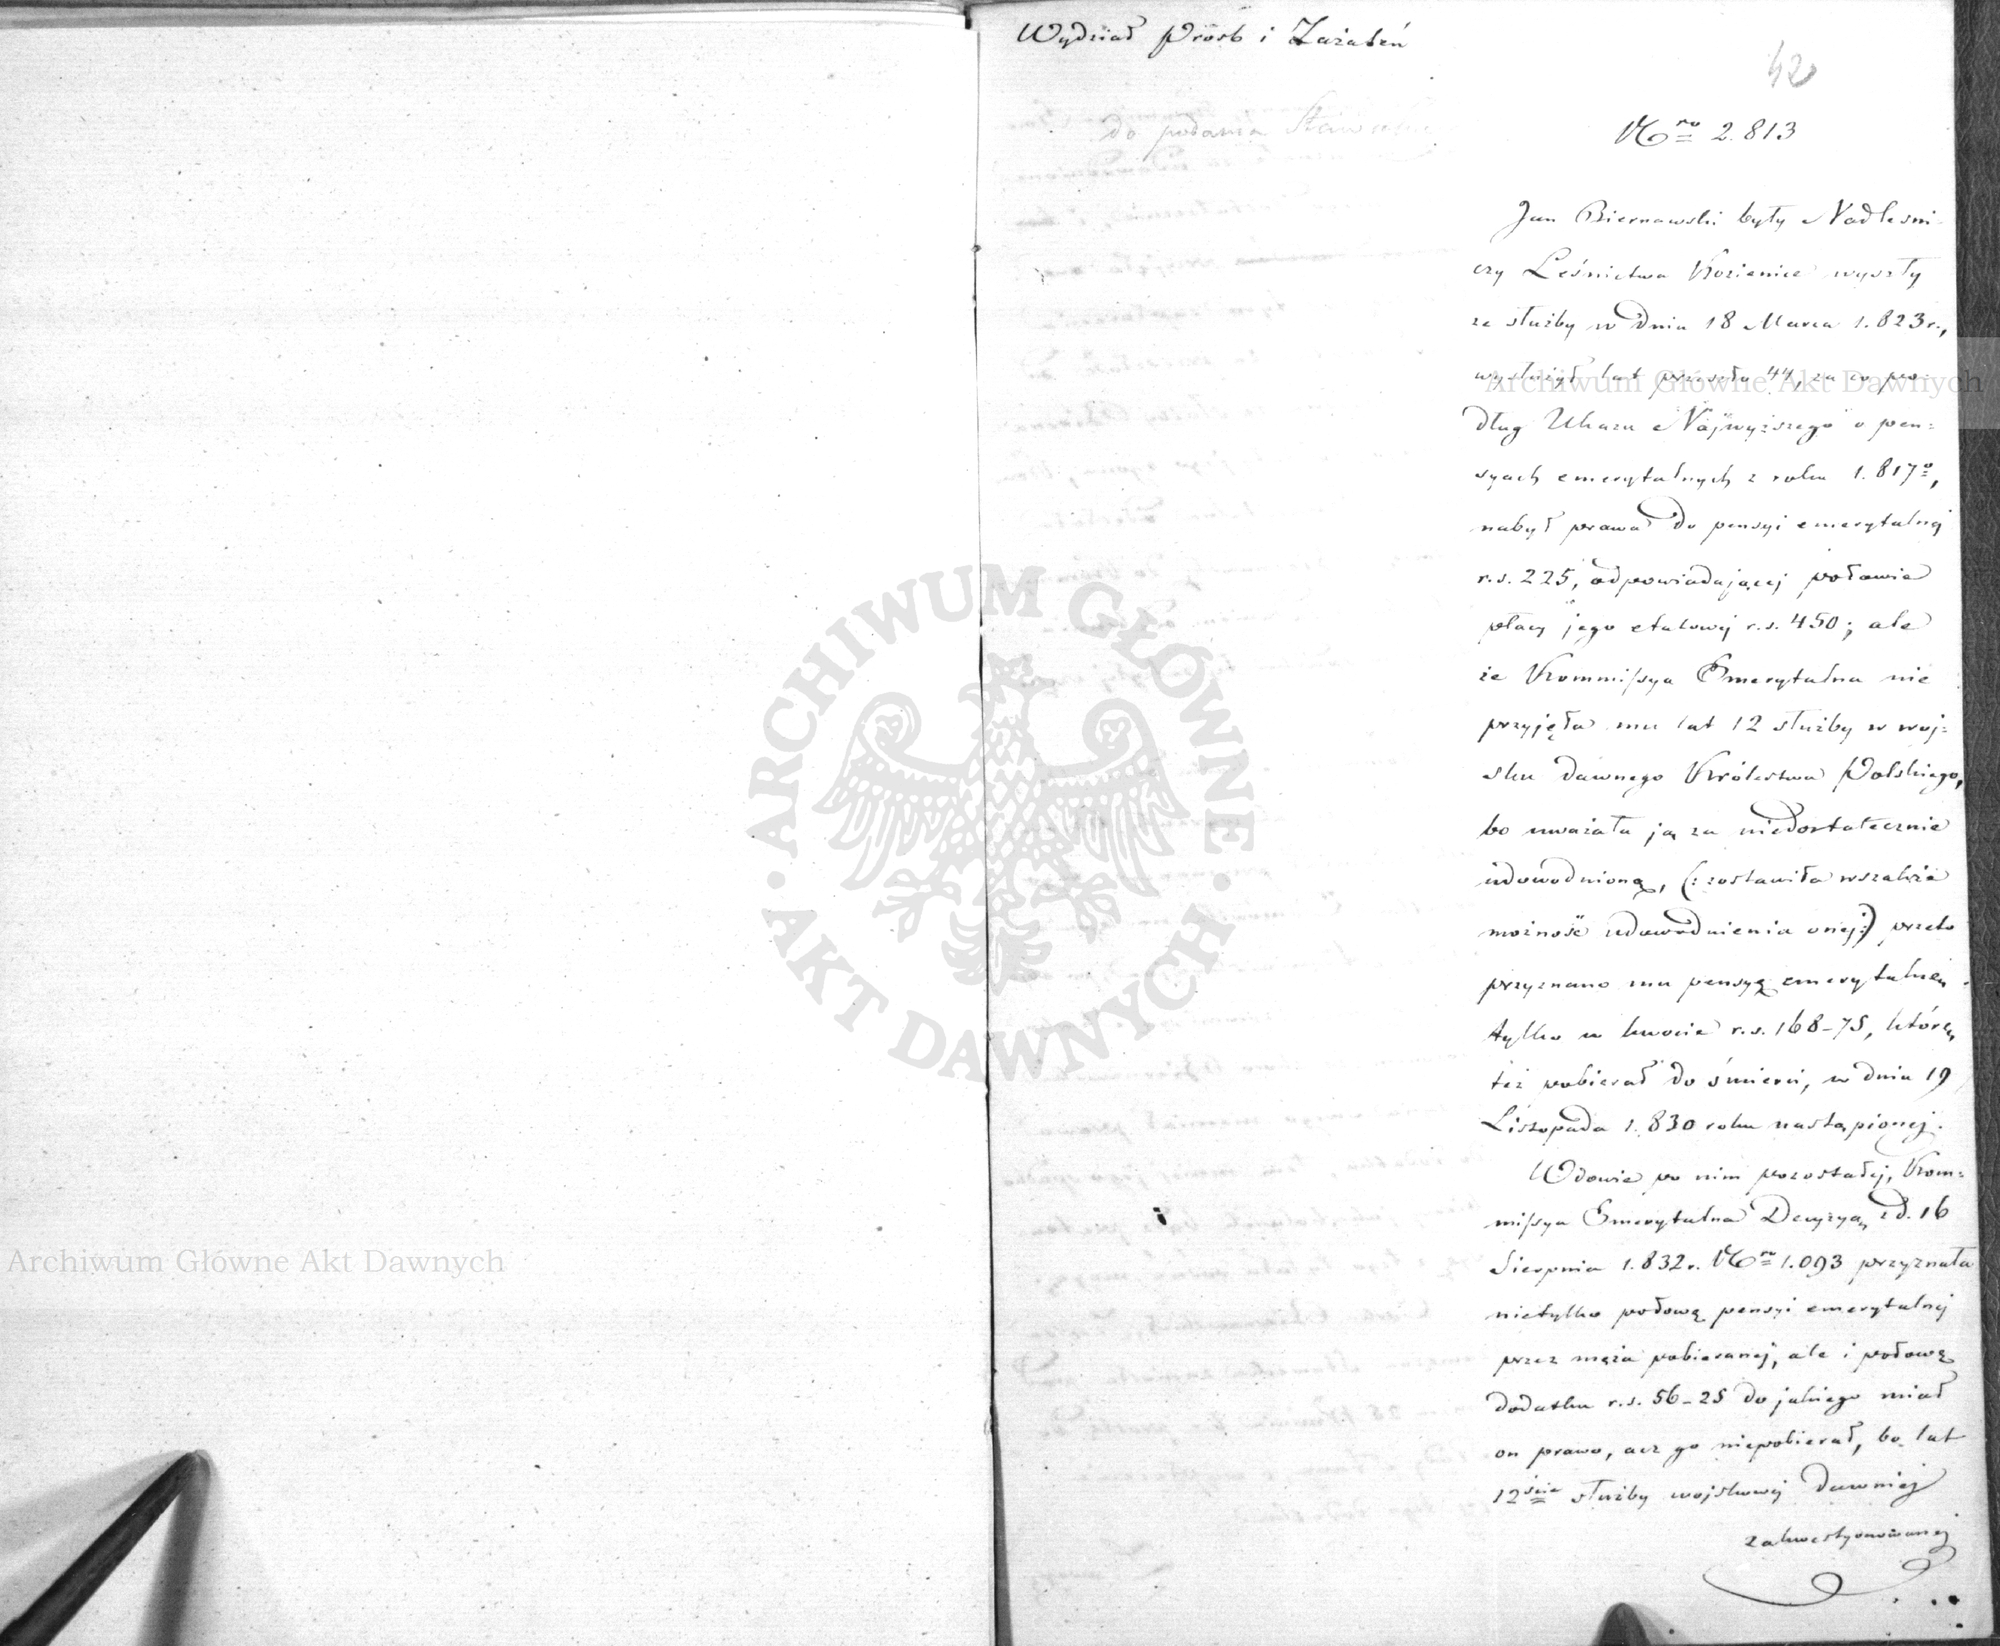 Wydział Prósb i Zażaleń
42
do podania
Nro 2.813
Jan Biernawski były Nadleśni-
czy Leśnictwa Kozienice wyszły
ze służby w dniu 18 Marca 1.823 r.,
wysłużył lat przeszło 44, za co po-
dług Ukazu Najwyższego o pen=
syach emerytalnych z roku 1.817o,
nabył prawa do pensyi emerytalnej
r.s. 225, odpowiadającej połowie
płacy jego etatowej r.s. 450; ale
że Kommissya Emerytalna nie
przyjęła mu lat 12 służby w woj=
sku dawnego Królestwa Polskiego,
bo uważała ją za niedostatecznie
udowodnioną, (: zostawiła wszakże
możność udowodnienia onej :) przeto
przyznano mu pensyą emerytalną
tylko w kwocie r.s. 168-75, którą
też pobierał do śmierci, w dniu 19
Listopada 1.830 roku nastąpionej.
Wdowie po nim pozostałej, Kom=
missya Emerytalna Decyzyą z d. 16
Sierpnia 1.832 r. Nro 1.093 przyznała
nietylko połowę pensyi emerytalnej
przez męża pobieranej, ale i połowę
dodatku r.s. 56-25 do jakiego miał
on prawo, acz go niepobierał, bo lat
12ście służby wojskowej dawniej
zakwestyonowanej
Archiwum Główne Akt Dawnych
ARCHIWUM GŁÓWNE
AKT DAWNYCH
Archiwum Główne Akt Dawnych